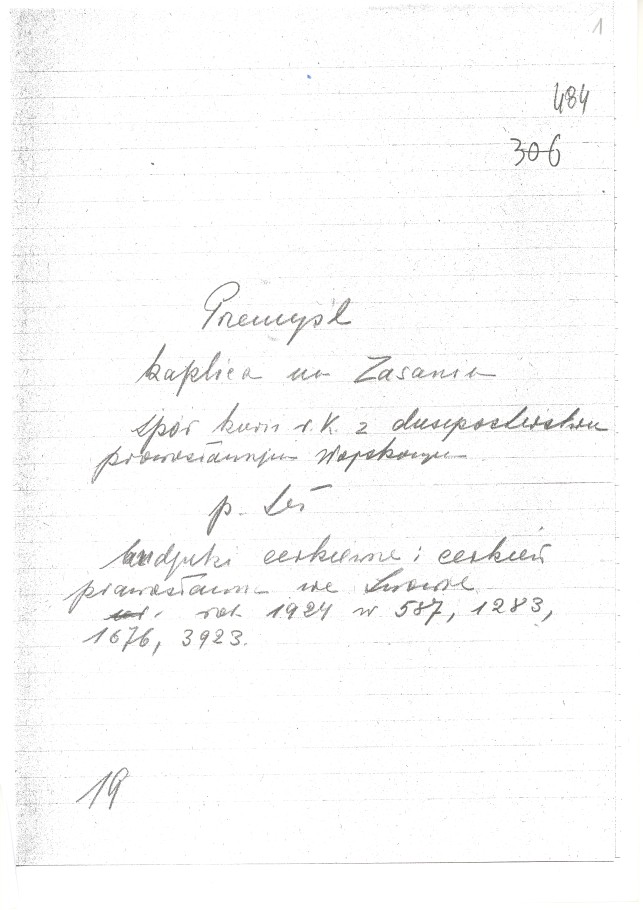 1
484
306
Przemyśl
kaplica na Zasaniu
spór kurii r.k. z duszpasterstwem
prawosławnym Wojskowym
p.
budynki cerkiewne i cerkiew
prawosławna we Lwowie
rok 1924 nr 587, 1283,
1676, 3923.
19